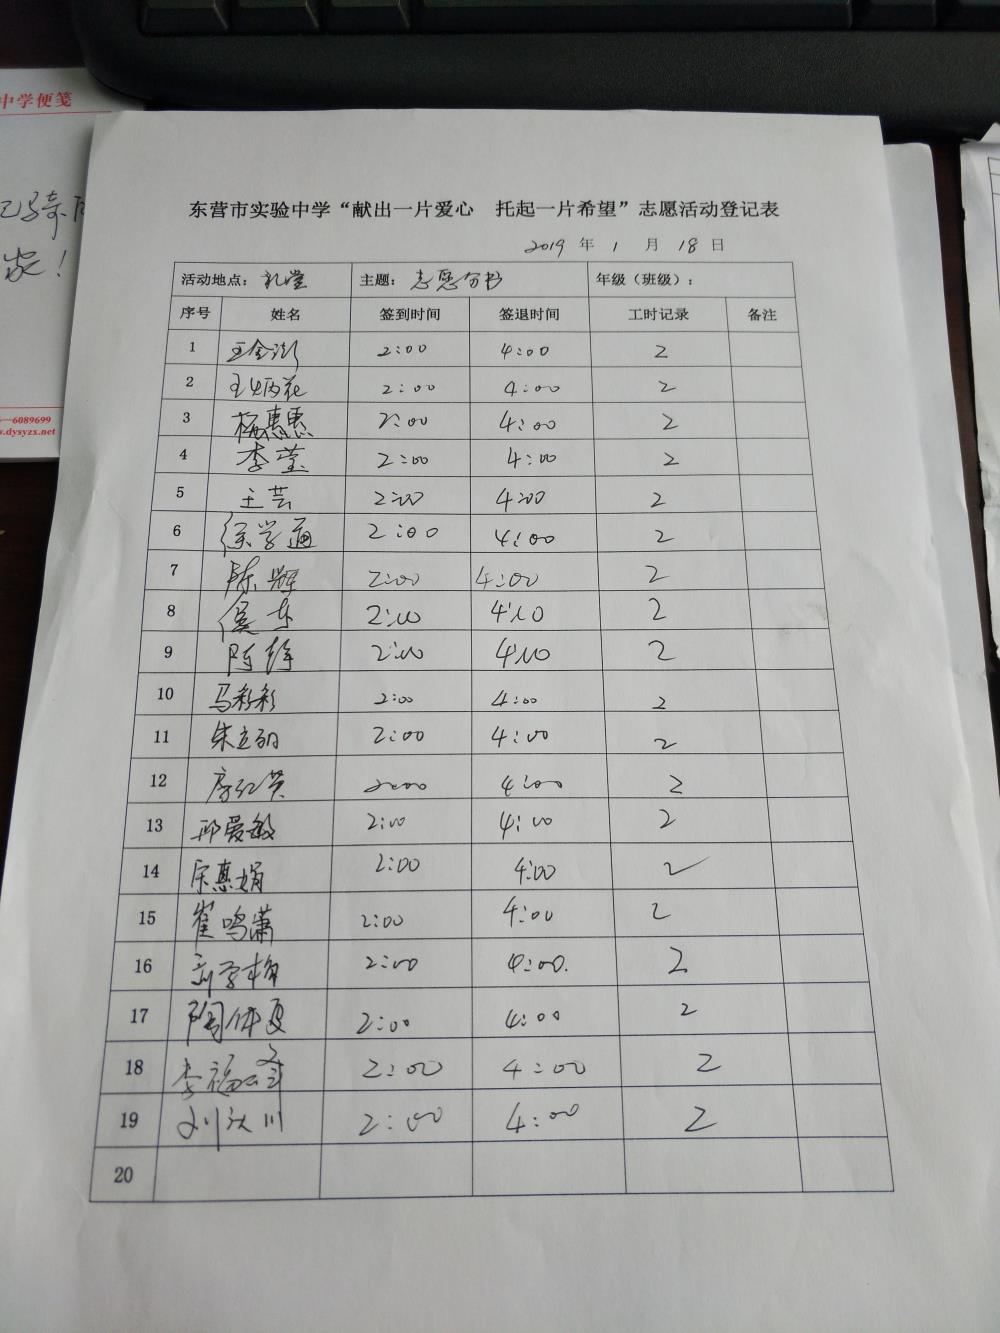 中学便笺
家！
6089699
w.dysyzx.net
东营市实验中学“献出一片爱心 托起一片希望”志愿活动登记表
2019 年 1 月 18 日
活动地点：礼堂 主题：志愿分书 年级（班级）：
序号 姓名 签到时间 签退时间 工时记录 备注
1 王金 2:00 4:00 2
2 王炳花 2:00 4:00 2
3 杨惠惠 2:00 4:00 2
4 李莹 2:00 4:00 2
5 王芸 2:00 4:00 2
6 徐学通 2:00 4:00 2
7 陈辉 2:00 4:00 2
8 侯东 2:00 4:00 2
9 陈静 2:00 4:00 2
10 马彩彩 2:00 4:00 2
11 朱立 2:00 4:00 2
12 红英 2:00 4:00 2
13 邱爱敏 2:00 4:00 2
14 宋惠娟 2:00 4:00 2
15 崔鸣潇 2:00 4:00 2
16 学梅 2:00 4:00. 2
17 陶体夏 2:00 4:00 2
18 李福 2:00 4:00 2
19 刘汉川 2:00 4:00 2
20